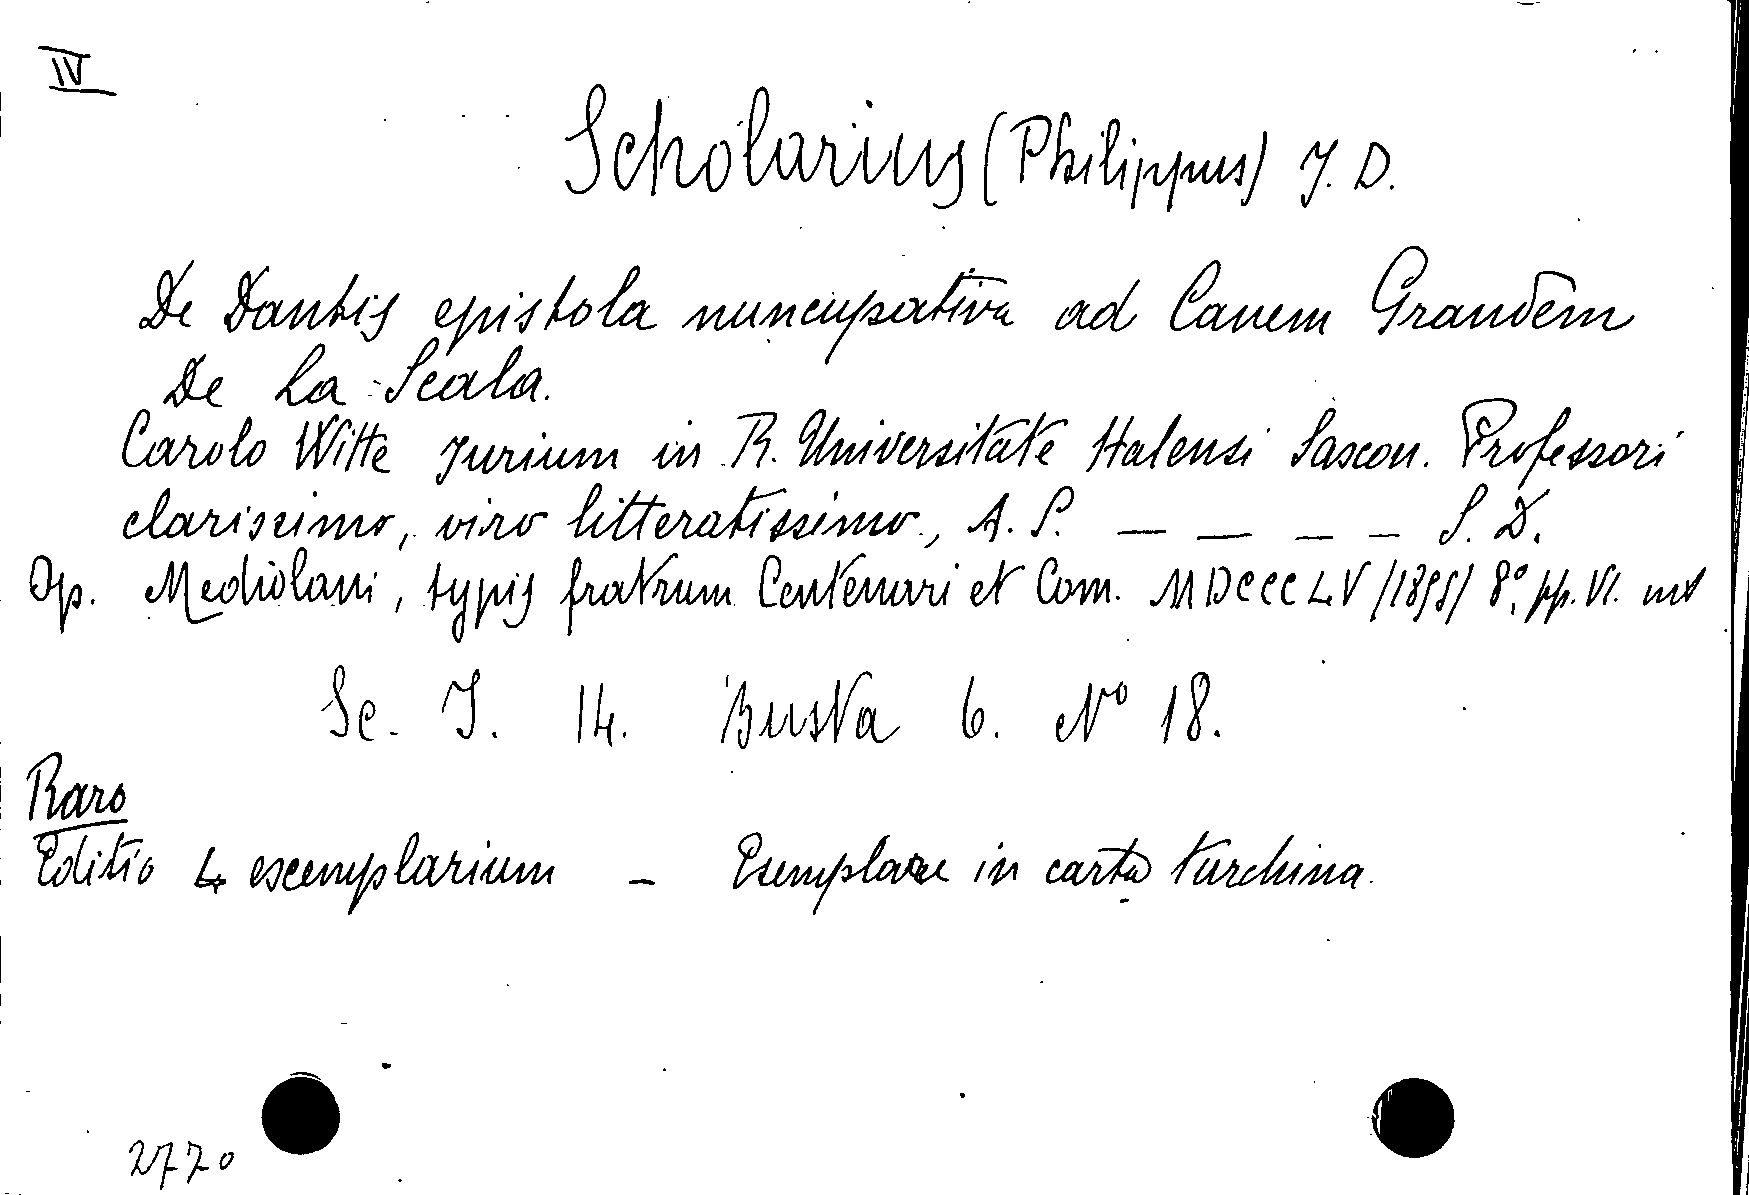 IV
Scholarius (Philippus) J. D.
De Dantis epistola nuncupativa ad Canem Grandem
De La Scala.
Carolo Witte Jurium in R. Universitate Halensi Saxon. Professori
clarissimo, viro litteratissimo, A. S. — — — — S. D.
Op. Mediolani, typis fratrum Centenari et Com. MDCCCLV (1855) 8°, pp. VI.
Sc. J. 14. Busta 6. N° 18.
Raro
Editio 4 exemplarium — Esemplare in carta turchina.
2770